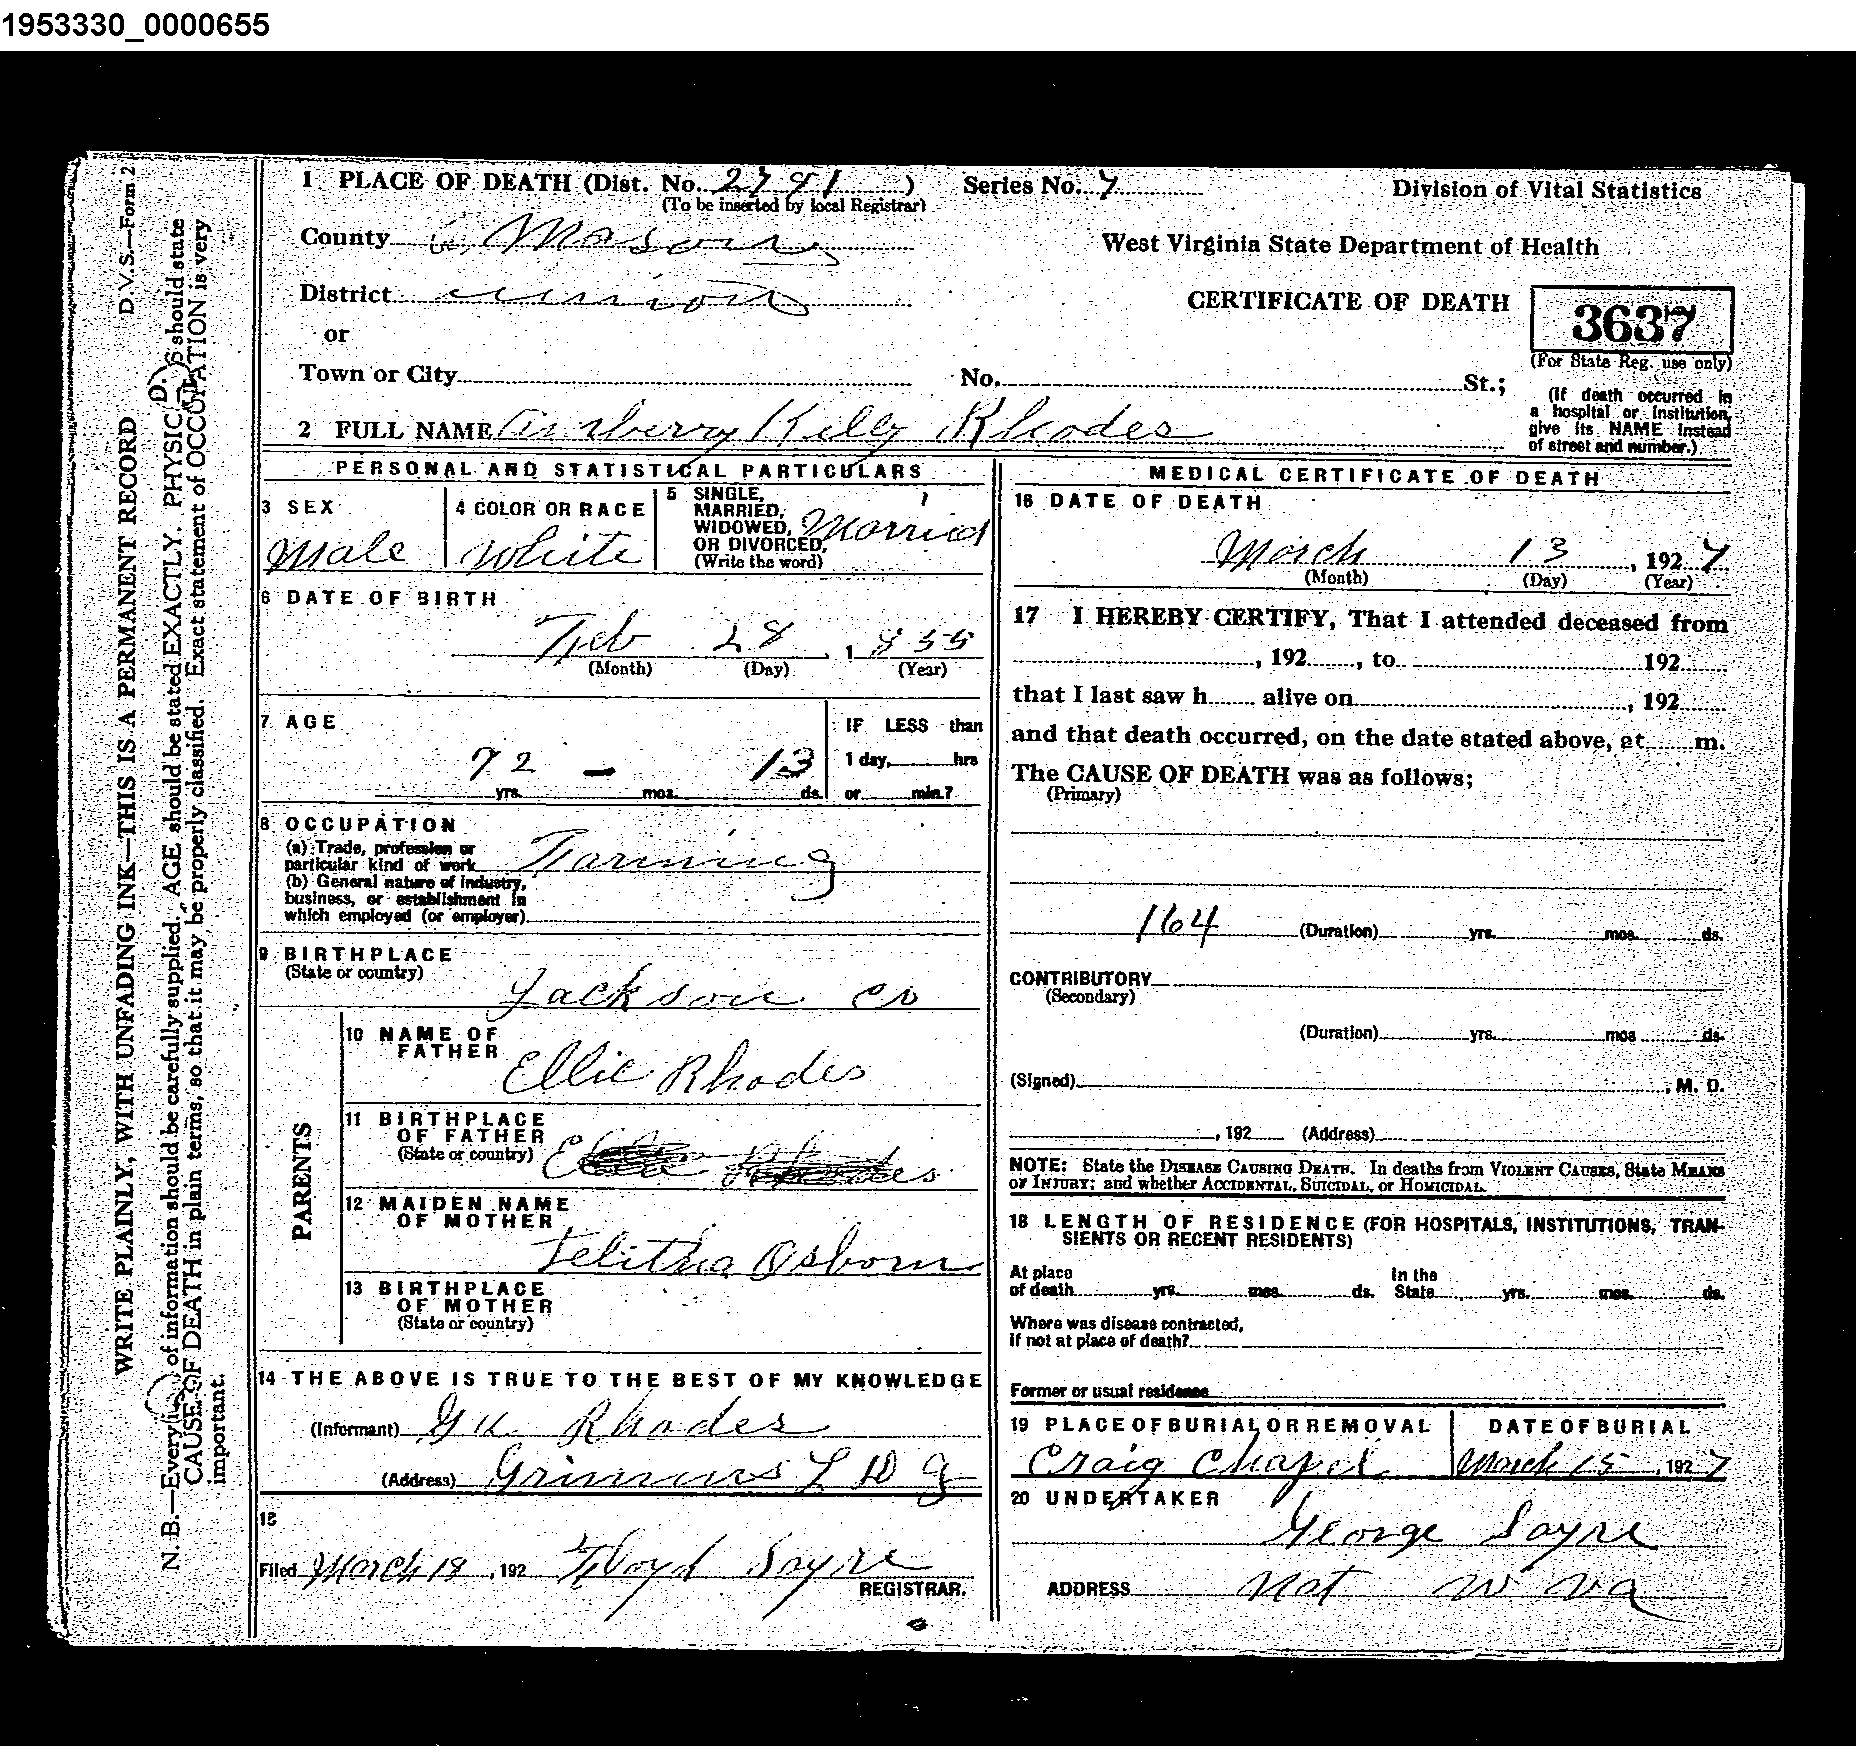 1953330_0000655
D.V.S.—Form 2
WRITE PLAINLY, WITH UNFADING INK—THIS IS A PERMANENT RECORD
N. B.—Every of information should be carefully supplied. AGE should be stated EXACTLY. PHYSIC S should state
CAUSE OF DEATH in plain terms, so that it may be properly classified. Exact statement of OCCUPATION is very
important.
1 PLACE OF DEATH (Dist. No. 2791 ) Series No. 7 Division of Vital Statistics
(To be inserted by local Registrar)
County Mason West Virginia State Department of Health
District union CERTIFICATE OF DEATH 3637
or
(For State Reg. use only)
Town or City No. St.;
(If death occurred in
a hospital or institution,
give its NAME instead
of street and number.)
2 FULL NAME Kelly Rhodes
PERSONAL AND STATISTICAL PARTICULARS
3 SEX
Male
4 COLOR OR RACE
White
5 SINGLE,
MARRIED,
WIDOWED,
OR DIVORCED,
(Write the word)
Married
6 DATE OF BIRTH
Feb 28, 1855
(Month) (Day) (Year)
7 AGE
72 — 13
yrs. mos. ds.
IF LESS than
1 day, hrs
or min.?
8 OCCUPATION
(a) Trade, profession or
particular kind of work Farming
(b) General nature of industry,
business, or establishment in
which employed (or employer)
9 BIRTHPLACE
(State or country)
Jackson Co
PARENTS
10 NAME OF
FATHER
Ellie Rhodes
11 BIRTHPLACE
OF FATHER
(State or country)
Ellie Rhodes
12 MAIDEN NAME
OF MOTHER
Telitha Osborn
13 BIRTHPLACE
OF MOTHER
(State or country)
14 THE ABOVE IS TRUE TO THE BEST OF MY KNOWLEDGE
(Informant) Rhodes
(Address) Grimms L D G
15
Filed March 18, 192 Floyd Sayre
REGISTRAR.
MEDICAL CERTIFICATE OF DEATH
16 DATE OF DEATH
March 13, 1927
(Month) (Day) (Year)
17 I HEREBY CERTIFY, That I attended deceased from
, 192 , to 192
that I last saw h alive on , 192
and that death occurred, on the date stated above, at m.
The CAUSE OF DEATH was as follows;
(Primary)
164 (Duration) yrs. mos. ds.
CONTRIBUTORY
(Secondary)
(Duration) yrs. mos ds.
(Signed) , M. D.
, 192 (Address)
NOTE: State the DISEASE CAUSING DEATH. In deaths from VIOLENT CAUSES, State MEANS
OF INJURY; and whether ACCIDENTAL, SUICIDAL, or HOMICIDAL.
18 LENGTH OF RESIDENCE (FOR HOSPITALS, INSTITUTIONS, TRAN-
SIENTS OR RECENT RESIDENTS)
At place In the
of death yrs. mos. ds. State yrs. mos. ds.
Where was disease contracted,
if not at place of death?
Former or usual residence
19 PLACE OF BURIAL OR REMOVAL
Craig Chapel
DATE OF BURIAL
March 15, 1927
20 UNDERTAKER
George Sayre
ADDRESS Nat W Va